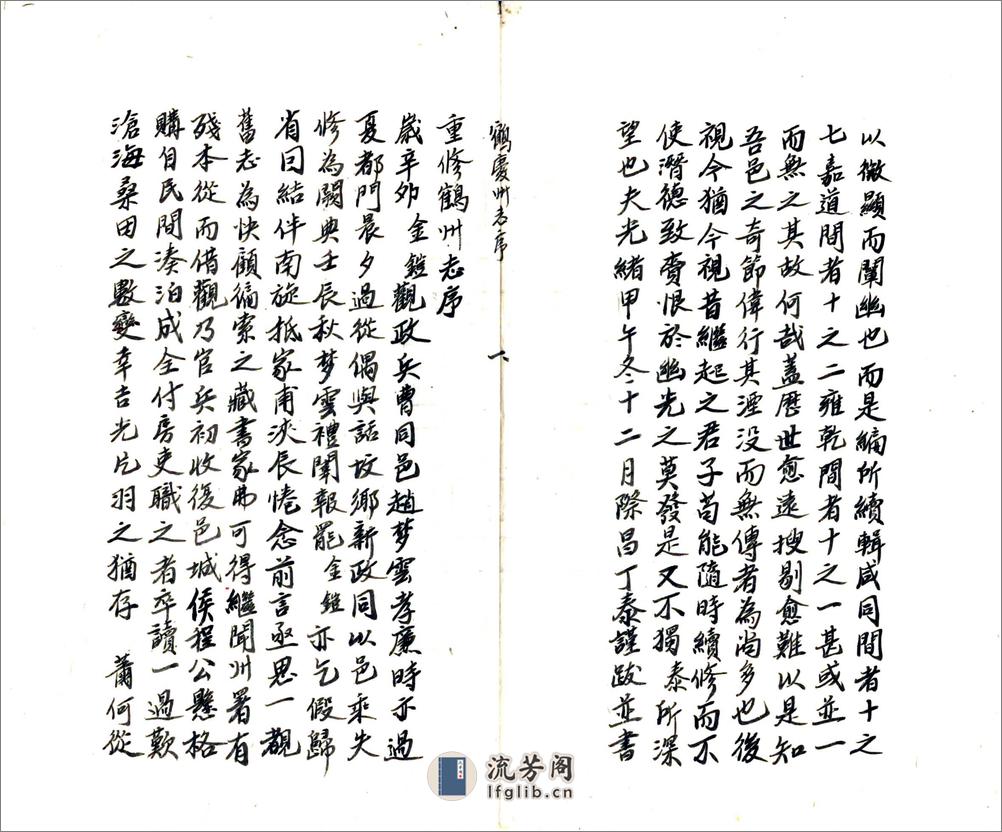 以微顯而闡幽也而是編所續輯咸同間者十之
七嘉道間者十之二雍乾間者十之一甚或並一
而無之其故何哉蓋歷世愈遠搜剔愈難以是知
吾邑之奇節偉行其湮没而無傳者為尚多也後
視今猶今視昔繼起之君子苟能隨時續修而不
使潛德致賫恨於幽光之莫發是又不獨泰所深
望也夫光緒甲午冬十二月際昌丁泰謹跋並書
鶴慶州志序
一
重修鶴州志序
歲辛卯金鎧觀政兵曹同邑趙夢雲孝廉時亦過
夏都門晨夕過從偶與話坟鄉新政同以邑乘失
修為闕典壬辰秋夢雲禮闈報罷金鎧亦乞假歸
省曰結伴南旋抵家甫浹辰惓念前言亟思一覩
舊志為快顧徧索之藏書家弗可得繼聞州署有
殘本從而借觀乃官兵初收復邑城侯程公懸格
購自民間湊泊成全付房吏職之者卒讀一過歎
滄海桑田之數變幸吉光片羽之猶存 蕭何從
流芳阁
lfglib.cn